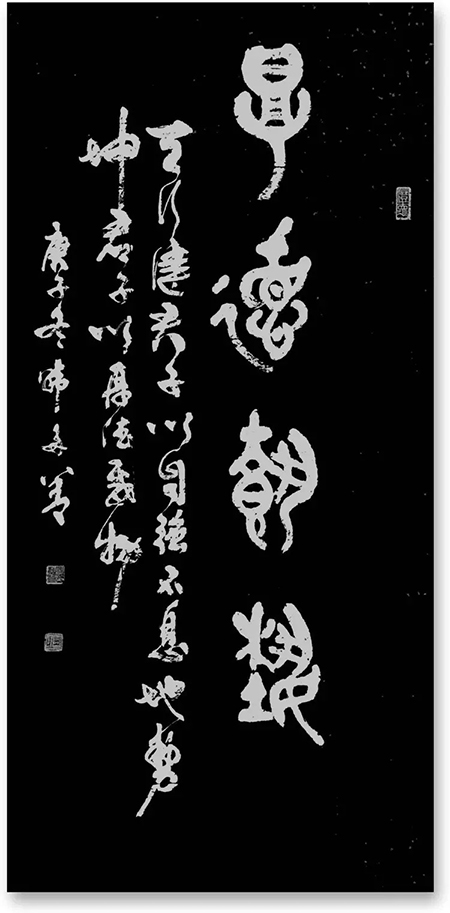 厚德
天行健君子以自強不息地勢
坤君子以厚德載物
庚子冬